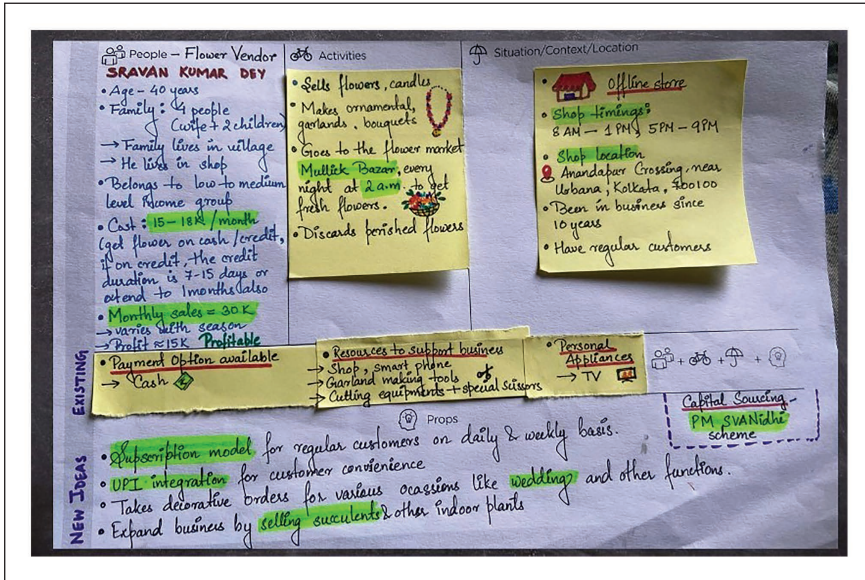 People – Flower Vendor
SRAVAN KUMAR DEY
• Age – 40 years
• Family: 4 people
(wife + 2 children)
→ Family lives in village
→ He lives in shop
• Belongs to low to medium
level income group
• Cost: 15 – 18K /month
(get flower on cash/credit,
if on credit, the credit
duration is 7-15 days or
extend to 1months also
• Monthly sales = 30K
→ varies with season
→ Profit ≈ 15K Profitable
Activities
• Sells flowers, candles
• Makes ornamental,
garlands, bouquets
• Goes to the flower market
Mullick Bazar, every
night at 2 a.m. to get
fresh flowers.
• Discards perished flowers
Situation/Context/Location
• Offline store
• Shop timings:
8 AM – 1 PM, 5PM – 9PM
• Shop location
Anandapur Crossing, near
Urbana, Kolkata, 700100
• Been in business since
10 years
• Have regular customers
EXISTING
• Payment Option available
→ Cash
• Resources to support business
→ Shop, smart phone
→ Garland making tools
→ Cutting equipments + special scissors
• Personal
Appliances
→ TV
+ + +
Capital Sourcing -
PM SVANidhi
scheme
Props
NEW IDEAS
• Subscription model for regular customers on daily & weekly basis.
• UPI integration for customer convenience
• Takes decorative orders for various ocassions like wedding, and other functions.
• Expand business by selling succulents & other indoor plants